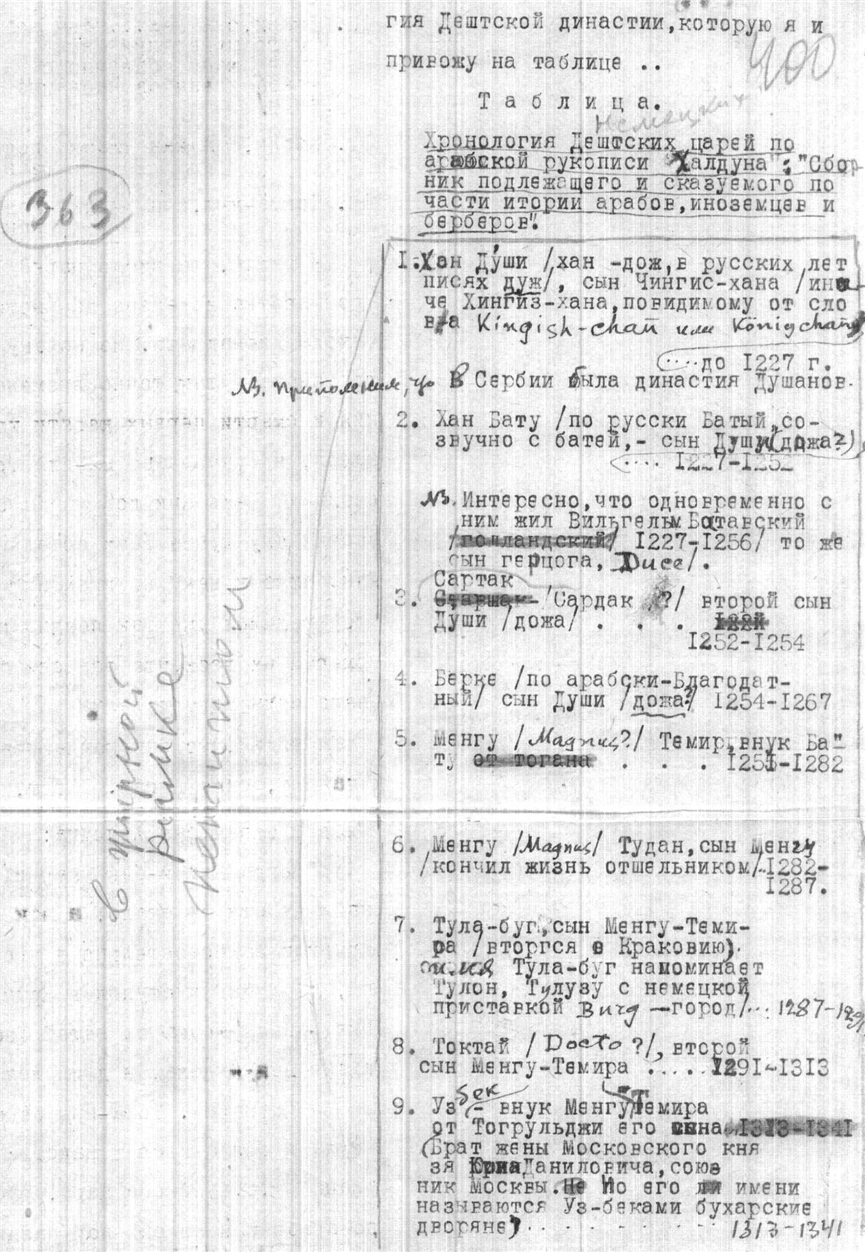 гия Дештской династии,которую я и
400
привожу на таблице ..
Т а б л и ц а.
немецких
Хронология Дештских царей по
арабской рукописи Халдуна": "Сбор-
ник подлежащего и сказуемого по
части итории арабов,иноземцев и
берберов".
363
1. Хан Души /хан -дож,в русских лет
писях дуж/, сын Чингис-хана /ина-
че Хингиз-хана,повидимому от сло
ва Kingish-chan или Königchan/
....до 1227 г.
NB. Припомним, что В Сербии была династия Душанов.
2. Хан Бату /по русски Батый,со-
звучно с батей,- сын Души(дожа?),
.... 1227-1252
NB. Интересно,что одновременно с
ним жил Вильгельм Батавский
/голландский/ 1227-1256/ то же
сын герцога, Duce/.
Сартак
3. /Сардак ?/ второй сын
Души /дожа/ . . .
1252-1254
4. Берке /по арабски-Благодат-
ный/ сын Души /дожа?/ 1254-1267
5. Менгу /Magnus?/ Темир,внук Ба-
ту от тогана . . . 1251-1282
в чёрной
рамке
петитом
6. Менгу /Magnus/ Тудан,сын Менгу
/кончил жизнь отшельником/-1282-
1287.
7. Тула-буг,сын Менгу-Теми-
ра /вторгся в Краковию).
имя Тула-буг напоминает
Тулон, Тулузу с немецкой
приставкой Burg —город/... 1287-1291
8. Токтай / Docto ?/, второй
сын Менгу-Темира ..... 1291-1313
9. Узбек - внук Менгу Темира
от Тогрульджи его сына 1313-1341
(Брат жены Московского кня
зя Юрия Даниловича,союз
ник Москвы. Не По его ли имени
называются Уз-беками бухарские
дворяне) - - - - - - 1313-1341